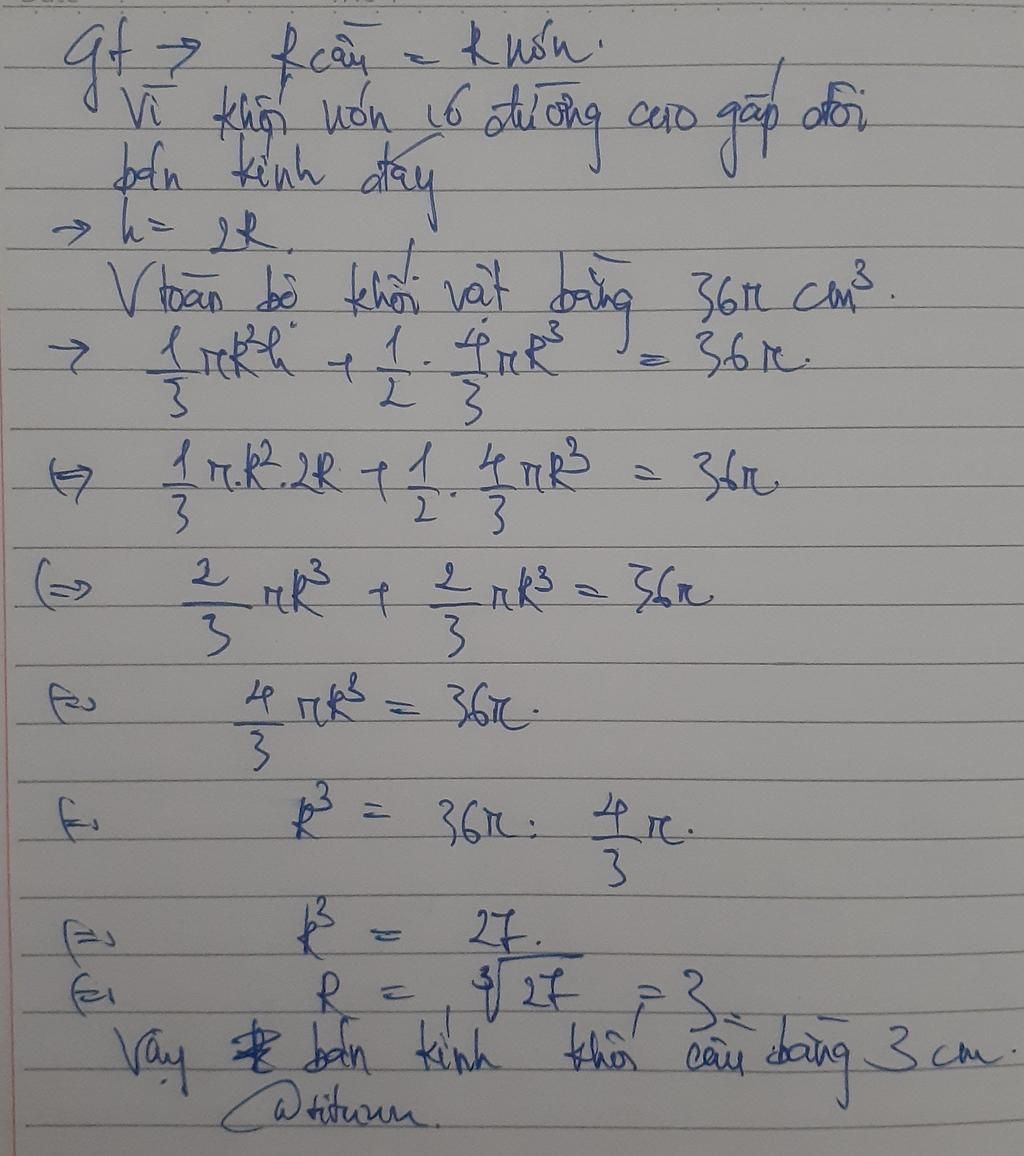 gt → R cầu = R nón.
Vì khối nón có đường cao gấp đôi
bán kính đáy
→ h = 2R.
V toàn bộ khối vật bằng 36π cm³.
→ 1/3 πR²h + 1/2 . 4/3 πR³ = 36π.
⇔ 1/3 π.R².2R + 1/2 . 4/3 πR³ = 36π
⇔ 2/3 πR³ + 2/3 πR³ = 36π
⇔ 4/3 πR³ = 36π.
⇔ R³ = 36π : 4/3 π.
⇔ R³ = 27.
⇔ R = ³√27 = 3.
Vậy bán kính khối cầu bằng 3 cm.